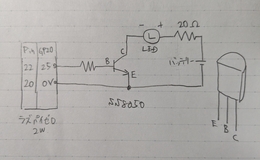 - +
L
LED
20Ω
C
B
E
Pin GPIO
22 25
20 0V
バッテリー
SS8050
ラズパイゼロ
2W
E B C